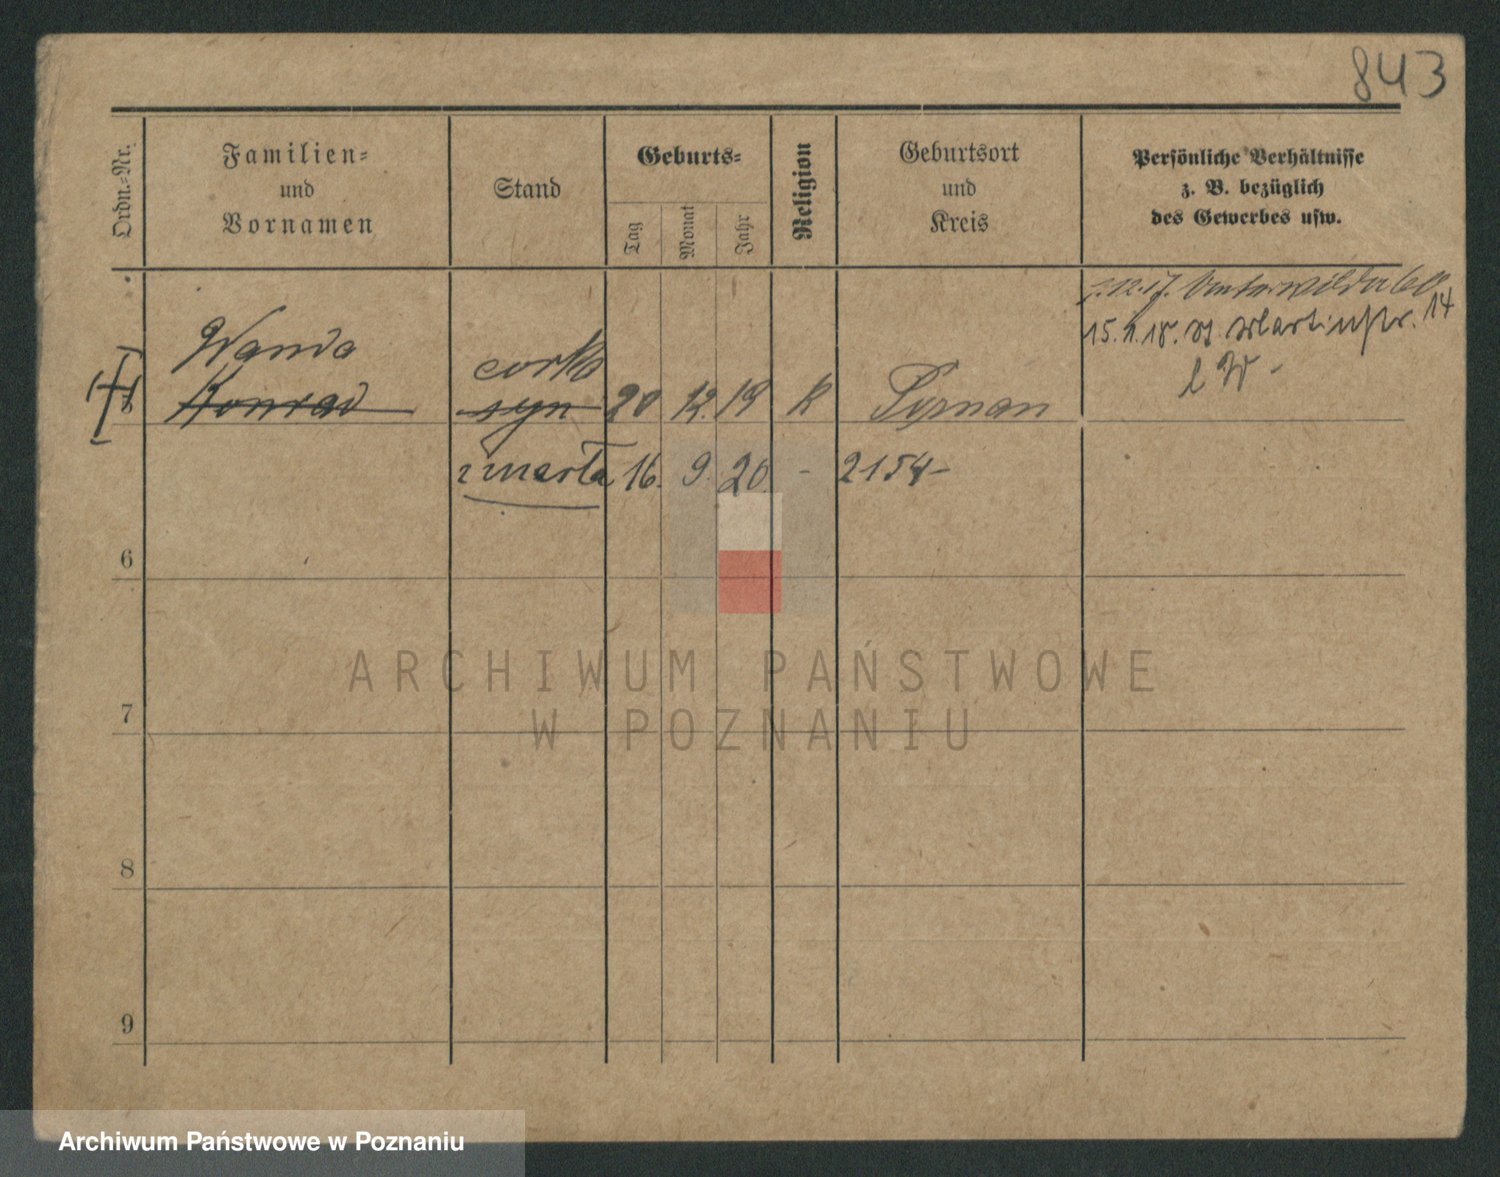 843
Ordn.-Nr.
Familien-
und
Vornamen
Stand
Geburts-
Tag
Monat
Jahr
Religion
Geburtsort
und
Kreis
Persönliche Verhältnisse
z. B. bezüglich
des Gewerbes usw.
7.12.17. Unterwilda 60
15.1.18. St. Martinstr. 14
Wanda
corka
5
Konrad
syn
20 12. 19 k
zmarła 16. 9. 20. - 2154-
6
7
8
9
ARCHIWUM PAŃSTWOWE
W POZNANIU
Archiwum Państwowe w Poznaniu